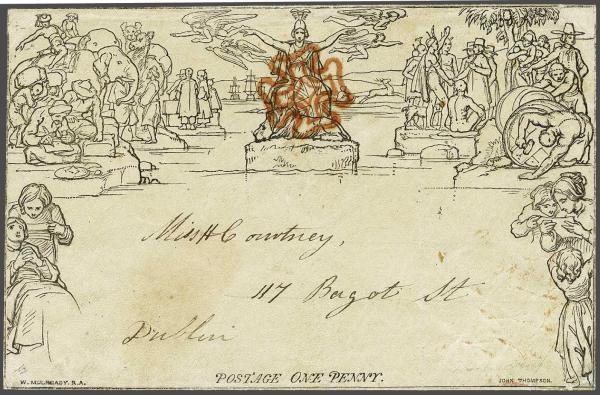 Miss H Courtney,
117 Bagot St
Dublin
POSTAGE ONE PENNY.
W. MULREADY. R.A.
JOHN THOMPSON.